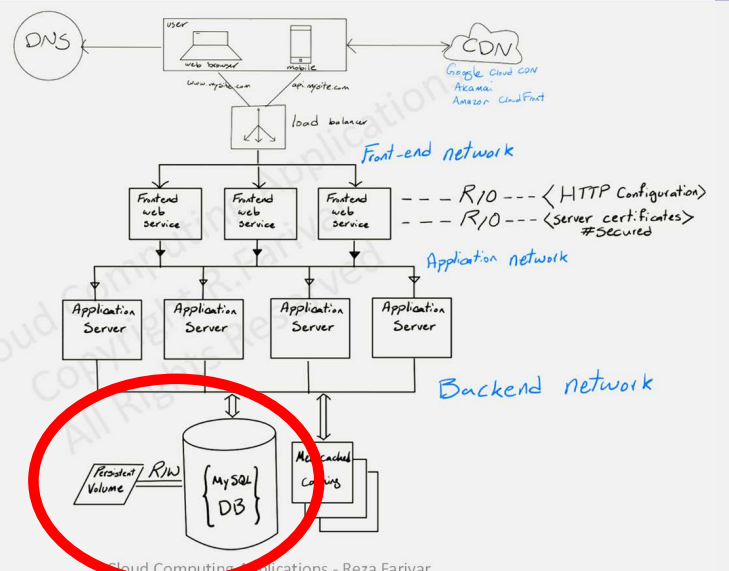 user
DNS
web browser
mobile
CDN
Google Cloud CDN
Akamai
Amazon CloudFront
www.mysite.com
api.mysite.com
load balancer
Front-end network
Frontend
web
service
Frontend
web
service
Frontend
web
service
R/O
<HTTP Configuration>
R/O
<server certificates>
#Secured
Application network
Application
Server
Application
Server
Application
Server
Application
Server
Backend network
Persistent
Volume
R/W
{MySQL
DB}
Memcached
Caching
Cloud Computing Applications
Copyright R. Farivar
All Rights Reserved
Cloud Computing Applications - Reza Farivar